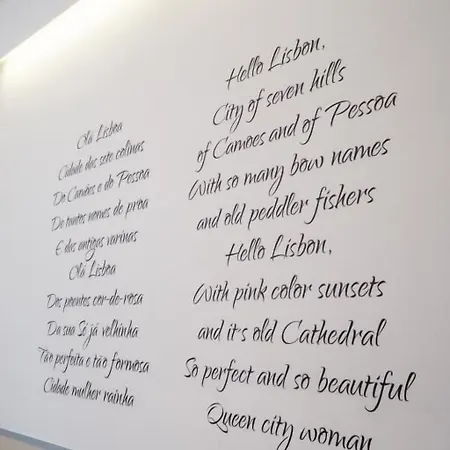 Olá Lisboa
Cidade das sete colinas
De Camões e de Pessoa
De tantos nomes de proa
E das antigas varinas
Olá Lisboa
Dos poentes cor-de-rosa
Da sua Sé já velhinha
Tão perfeita e tão formosa
Cidade mulher rainha
Hello Lisbon,
City of seven hills
of Camoes and of Pessoa
With so many bow names
and old peddler fishers
Hello Lisbon,
With pink color sunsets
and it's old Cathedral
So perfect and so beautiful
Queen city woman